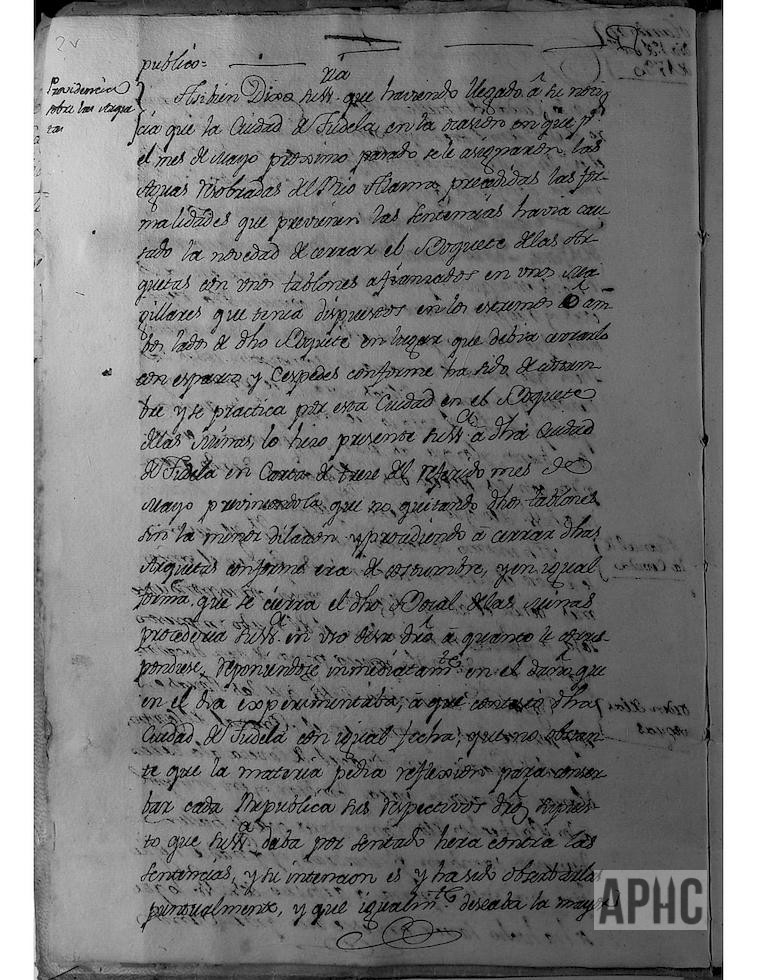 2v
publico=
Providencia
sobre las Arque
tas
Asi bien Dixo su Sria que haviendo llegado â su noti
cia que la Ciudad de Tudela, en la ocasion en que pr
el mes de Mayo proximo pasado se le asignaron las
Aguas sobradas del Rio Alhama, precedidas las for-
malidades que previenen las sentencias havia cau-
sado la novedad de cerrar el Boquete de las Ar-
quetas con unos tablones afianzados en unos
pillares que tenia dispuestos en los extremos de am-
bos lados de dho Boquete en lugar que debia cerrarlo
con esparto y Cespedes conforme ha sido de costum-
bre y se practica por esta Ciudad en el Boquete
de las Minas, lo hizo presente su Sa a dha Ciudad
de Tudela en Carta de trece del referido mes de
Mayo previniendola que no quitando dhos tablones
sin la menor dilacion y procediendo â cerrar dhas
Arquetas conforme era de costumbre, y en igual
forma que se cierra el dho Bocal de las Minas
procederia su Sa en uso de su dro â quanto le corres-
pondiese, reponiendose inmediatamte en el daño que
en el dia experimentaba; â que contestó dha
Ciudad de Tudela con igual fecha, que no obstan-
te que la materia pedia reflexion para conser
bar cada Republica sus respectivos dros supues-
to que su Sa daba por sentado hera contra las
sentencias, y su intencion es y ha sido obserbarlas
puntualmente, y que igualmte deseaba la mayor
APHC